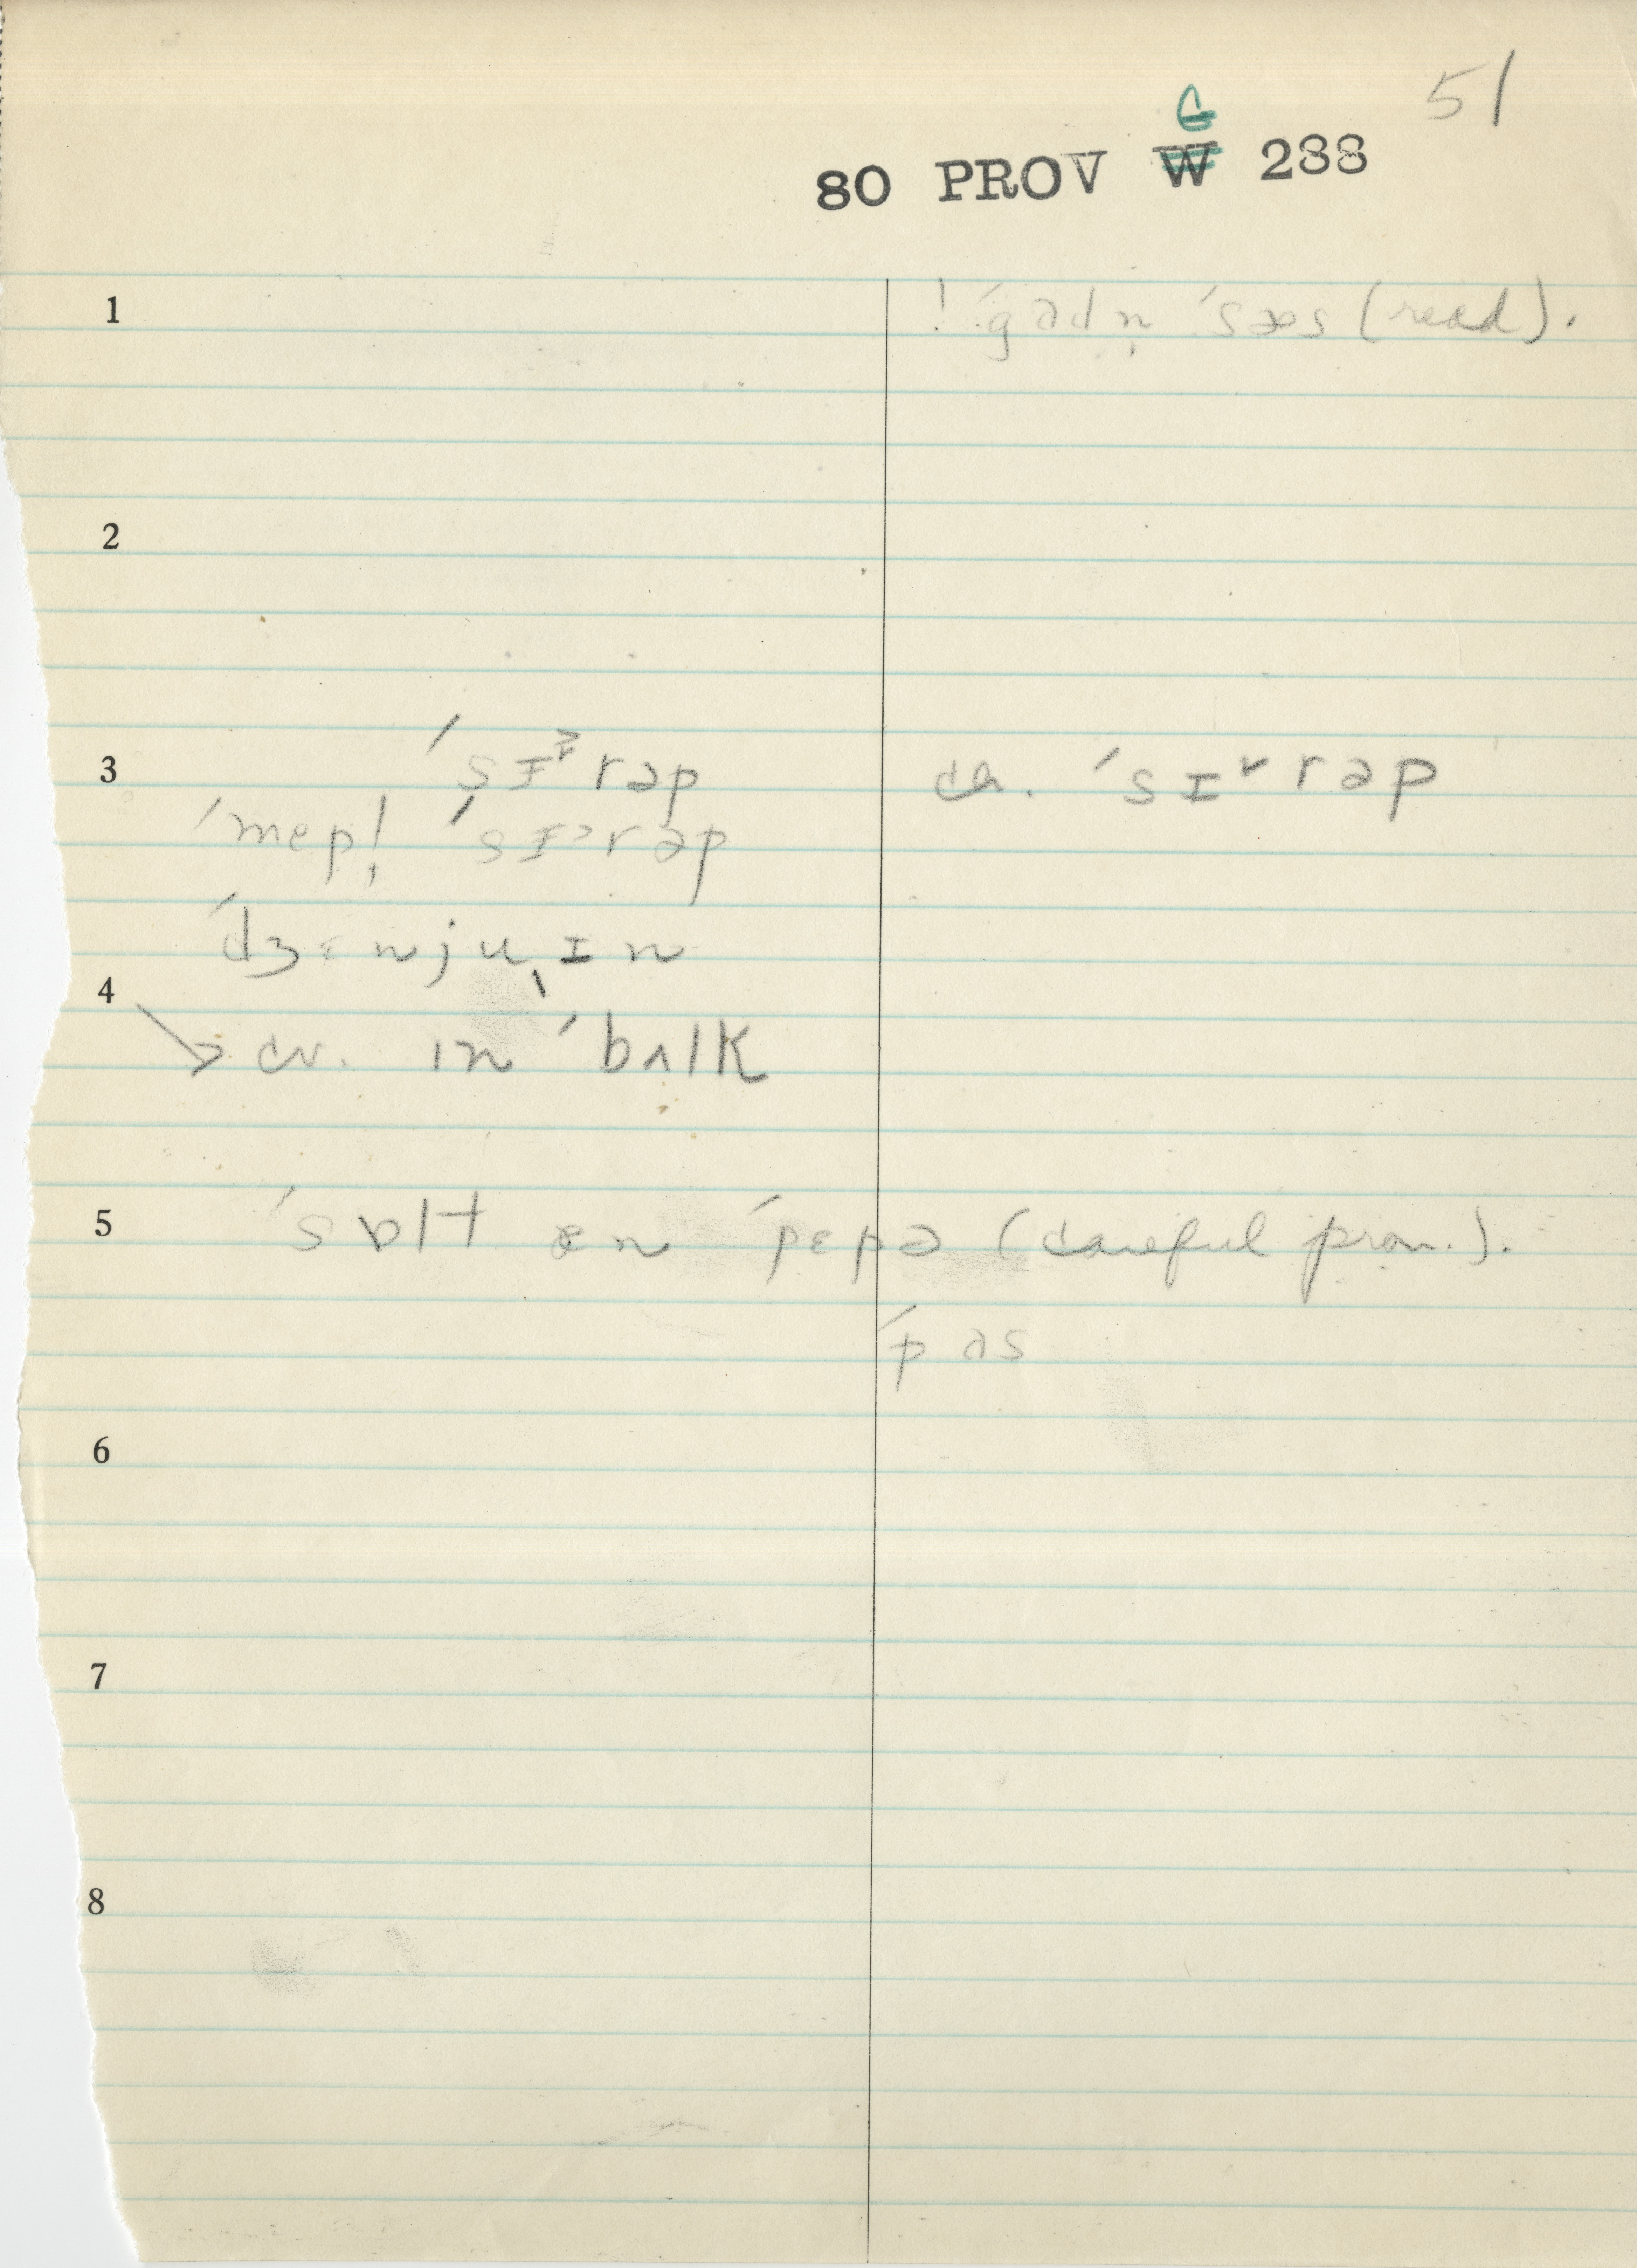 51
G
80 PROV W 288
1 ! ´gadn̩ ´sæs (read).
2
3 ´sɪ˃rəp cr. ´sɪ˅rəp
´mepl̩ ´sɪ˃rəp
´dʒɛnjuˌɪn
4
→ cv. ɪn ´bʌlk
5 ´sɒlt ən ´pɛpə (careful pron.).
´pəs
6
7
8